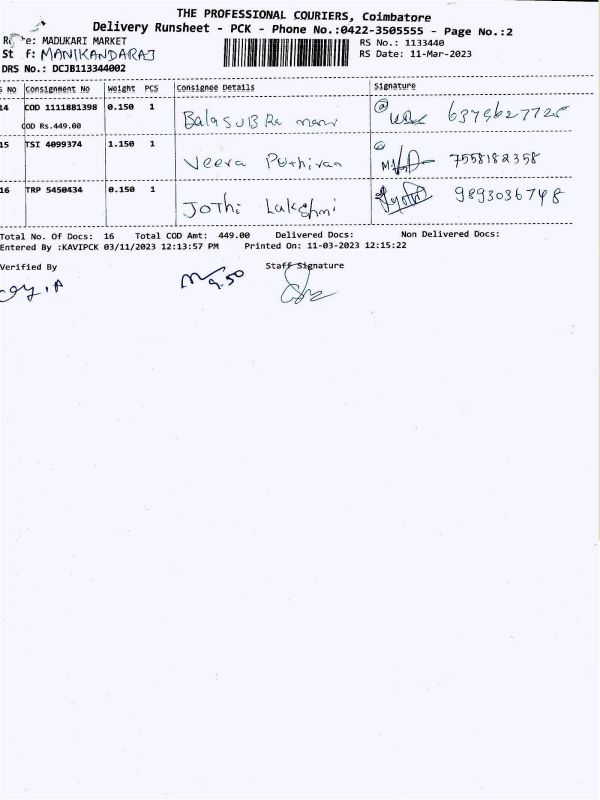 THE PROFESSIONAL COURIERS, Coimbatore
Delivery Runsheet - PCK - Phone No.:0422-3505555 - Page No.:2
e: MADUKARI MARKET RS No.: 1133440
St f: MANIKANDARAJ RS Date: 11-Mar-2023
DRS No.: DCJB113344002
S No Consignment No Weight PCS Consignee Details Signature
14 COD 1111881398 0.150 1 BalaSUBRa mani 6379627725
COD Rs.449.00
15 TSI 4099374 1.150 1 Veera Puthiran 7558182358
16 TRP 5450434 0.150 1 JoThi Lakshmi Jyothi 9893036748
Total No. Of Docs: 16 Total COD Amt: 449.00 Delivered Docs: Non Delivered Docs:
Entered By :KAVIPCK 03/11/2023 12:13:57 PM Printed On: 11-03-2023 12:15:22
Verified By Staff Signature
9.50